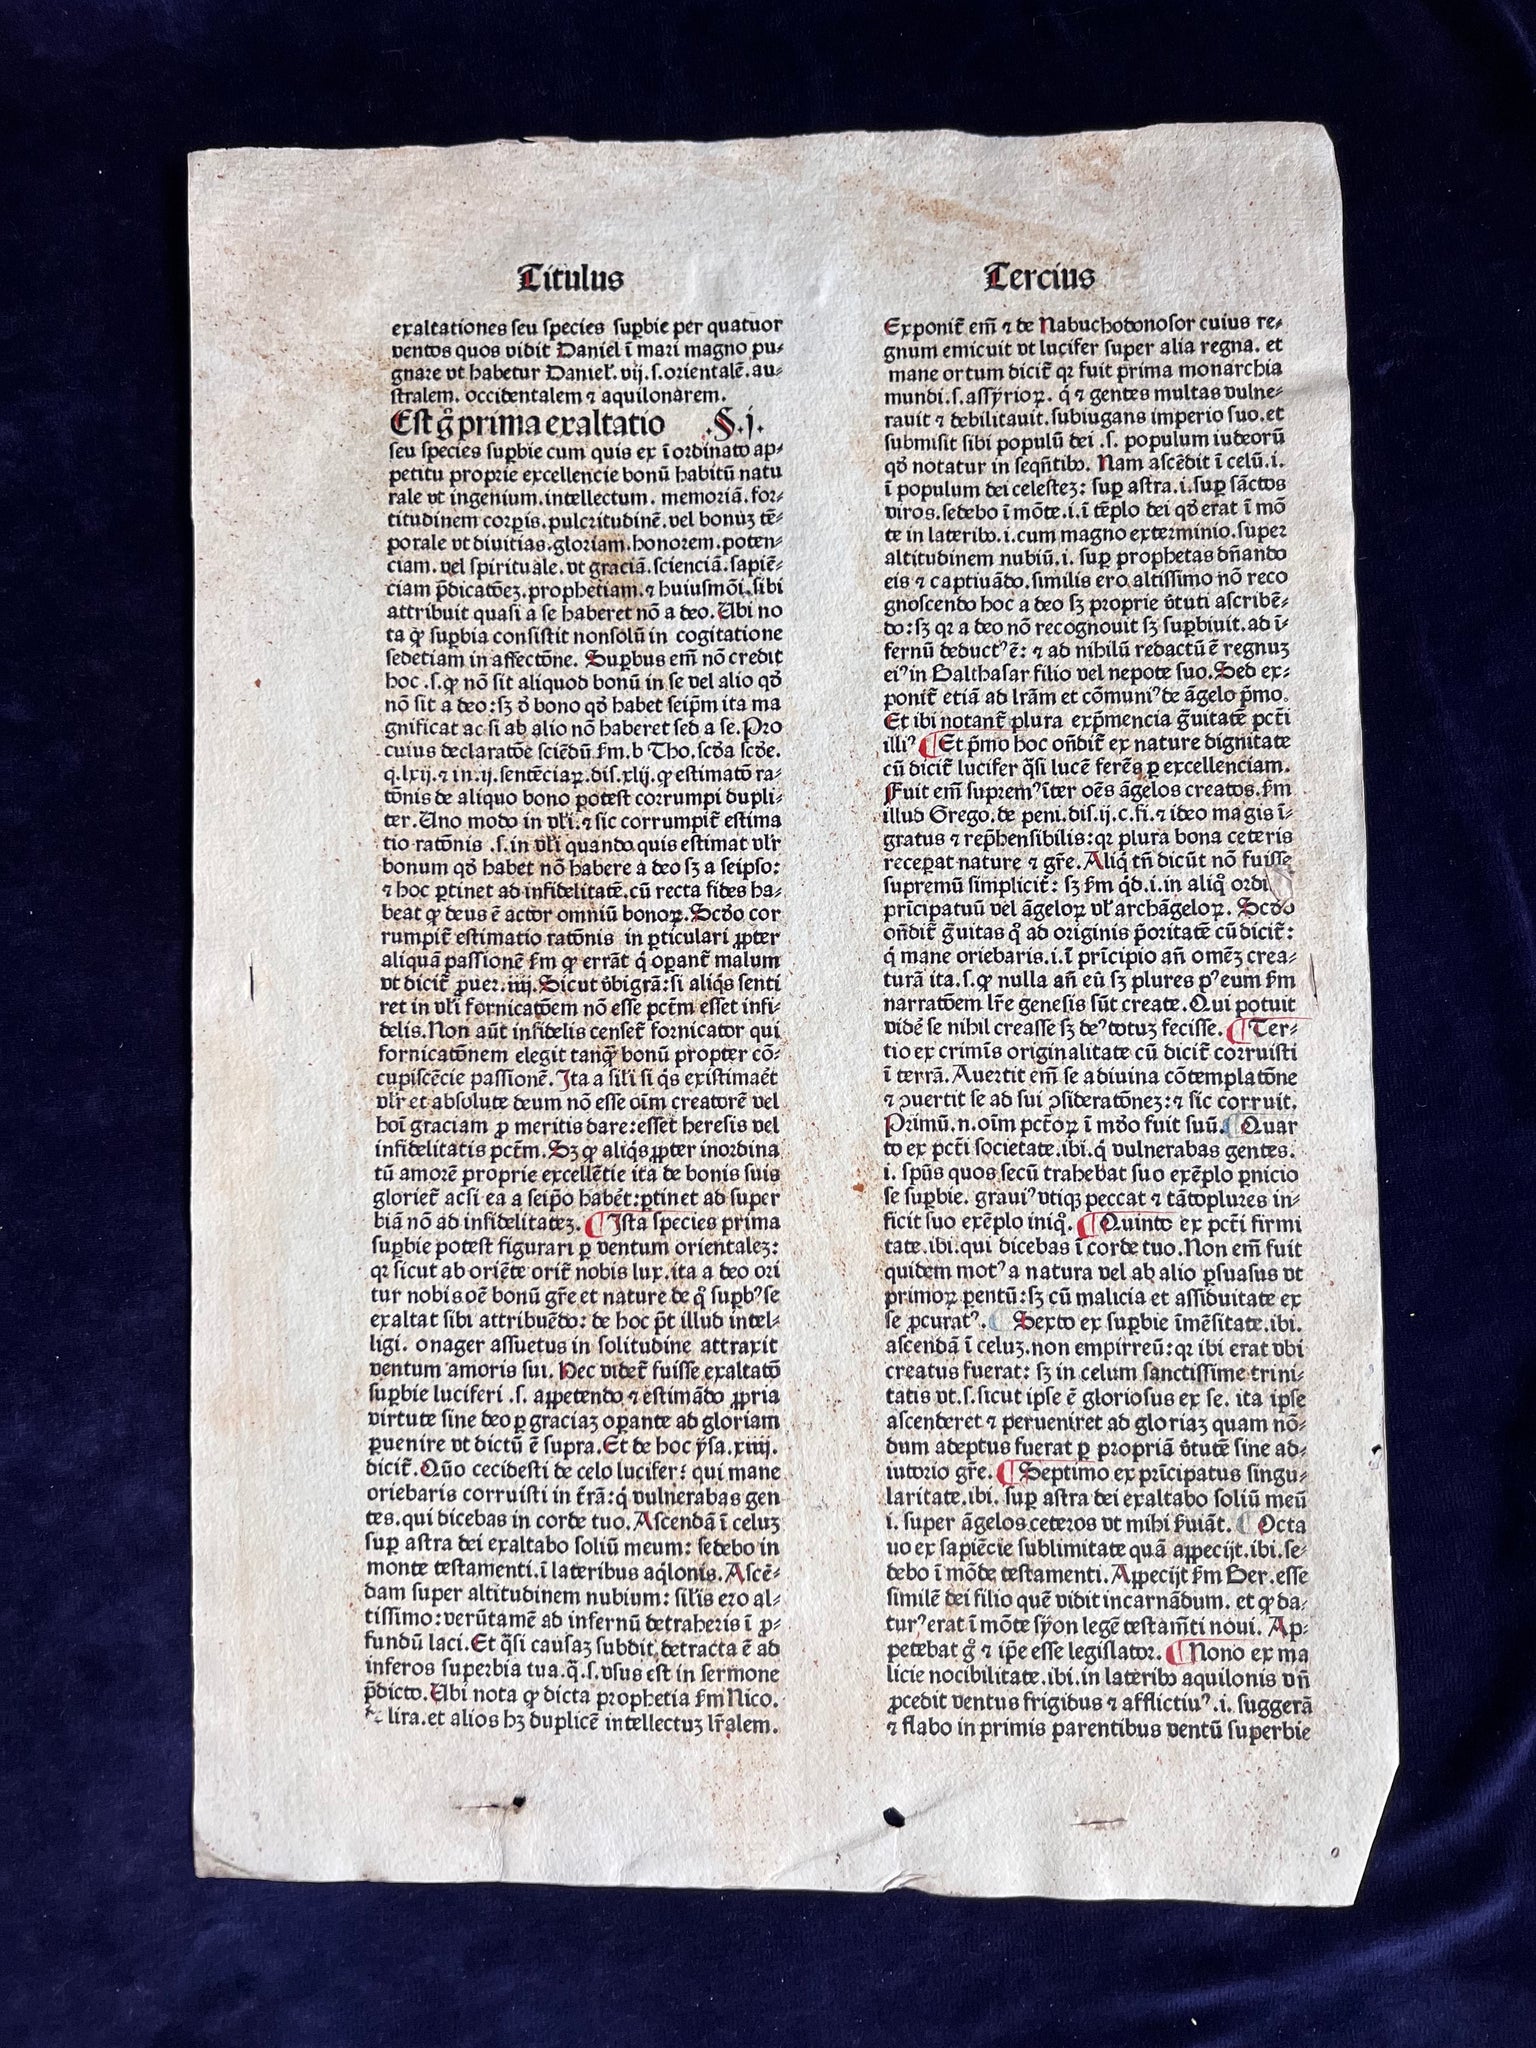 Titulus
exaltationes seu species suꝑbie per quatuor
ventos quos vidit Daniel ĩ mari magno pu⸗
gnare vt habetur Danieł. vij. s. orientalẽ. au⸗
stralem. occidentalem ⁊ aquilonarem.
Est gͦ prima exaltatio .§.j.
seu species suꝑbie cum quis ex ĩordinato ap⸗
petitu proprie excellencie bonũ habitũ natu
rale vt ingenium. intellectum. memoriã. for⸗
titudinem corꝑis. pulcritudinẽ. vel bonuꝫ tẽ⸗
porale vt diuitias. gloriam. honorem. poten⸗
ciam. vel spirituale. vt graciã. scienciã. sapiẽ⸗
ciam p̃dicatõeꝫ. prophetiam. ⁊ huiusmõi. sibi
attribuit quasi a se haberet nõ a deo. Ubi no
ta ꝙ suꝑbia consistit nonsolũ in cogitatione
sedetiam in affectõne. Suꝑbus em̃ nõ credit
hoc .s. ꝙ nõ sit aliquod bonũ in se vel alio qð
nõ sit a deo: sꝫ ð bono qð habet seip̃m ita ma
gnificat ac si ab alio nõ haberet sed a se. Pro
cuius declaratõe sciẽdũ ẜm. b Tho. scða scðe.
q̃. lxij. ⁊ in. ij. sentẽciaꝝ. dis. xlij. ꝙ estimatõ ra⸗
tõnis de aliquo bono potest corrumpi dupli⸗
ter. Uno modo in vłi. ⁊ sic corrumpit̃ estima
tio ratõnis .s. in vłi quando quis estimat vłr
bonum qð habet nõ habere a deo sꝫ a seipso:
⁊ hoc ꝑtinet ad infidelitatẽ. cũ recta fides ha⸗
beat ꝙ deus ẽ actor omniũ bonoꝝ. Scðo cor
rumpit̃ estimatio ratõnis in ꝑticulari ꝓpter
aliquã passionẽ ẜm ꝙ errãt q̇ oꝑant̃ malum
vt dicit̃ ꝓuer. iiij. Sicut v̉bigrã: si aliq̇s senti
ret in vłi fornicatõem nõ esse pctm̃ esset infi⸗
delis. Non aũt infidelis censet̃ fornicator qui
fornicatõnem elegit tanq̃ꝫ bonũ propter cõ⸗
cupiscẽcie passionẽ. Ita a siłi si q̇s existimaẽt
vłr et absolute deum nõ esse oĩm creatorẽ vel
hoĩ graciam ꝓ meritis dare: esset heresis vel
infidelitatis pctm̃. Sꝫ ꝙ aliq̇s ꝓpter inordina
tũ amorẽ proprie excellẽtie ita de bonis suis
gloriet̃ acsi ea a seip̃o habẽt: ꝑtinet ad super
biã nõ ad infidelitateꝫ. ¶ Ista species prima
suꝑbie potest figurari ꝑ ventum orientaleꝫ:
qꝛ sicut ab oriẽte orit̃ nobis lux. ita a deo ori
tur nobis oẽ bonũ gr̃e et nature de qͦ suꝑbꝰ se
exaltat sibi attribuẽdo: de hoc p̃t illud intel⸗
ligi. onager assuetus in solitudine attraxit
ventum amoris sui. Hec videt̃ fuisse exaltatõ
suꝑbie luciferi .s. appetendo ⁊ estimãdo ꝓpria
virtute sine deo ꝑ graciaꝫ oꝑante ad gloriam
ꝑuenire vt dictũ ẽ supra. Et de hoc ẏsa. xiiij.
dicit̃. Qũo cecidesti de celo lucifer: qui mane
oriebaris corruisti in t̃rã: q̇ vulnerabas gen
tes. qui dicebas in corde tuo. Ascendã ĩ celuꝫ
suꝑ astra dei exaltabo soliũ meum: sedebo in
monte testamenti. ĩ lateribus aq̇lonis. Ascẽ⸗
dam super altitudinem nubium: siłis ero al⸗
tissimo: verũtamẽ ad infernũ detraheris ĩ ꝓ⸗
fundũ laci. Et q̃si causaꝫ subdit, detracta ẽ ad
inferos superbia tua. q̃. s. vsus est in sermone
p̃dicto. Ubi nota ꝙ dicta prophetia ẜm Nico.
lira. et alios hꝫ duplicẽ intellectuꝫ lr̃alem.
Tercius
Exponit̃ em̃ ⁊ de Nabuchodonosor cuius re⸗
gnum emicuit vt lucifer super alia regna. et
mane ortum dicit̃ qꝛ fuit prima monarchia
mundi. s. assẏrioꝝ. q̇ ⁊ gentes multas vulne⸗
rauit ⁊ debilitauit. subiugans imperio suo. et
submisit sibi populũ dei .s. populum iudeorũ
qð notatur in seq̃ntibꝰ. Nam ascẽdit ĩ celũ. i.
ĩ populum dei celesteꝫ: suꝑ astra. i. suꝑ sãctos
viros. sedebo ĩ mõte. i. ĩ tẽplo dei qð erat ĩ mõ
te in lateribꝰ. i. cum magno exterminio. super
altitudinem nubiũ. i. suꝑ prophetas dñando
eis ⁊ captiuãdo. similis ero altissimo nõ reco
gnoscendo hoc a deo sꝫ proprie v̉tuti ascribẽ⸗
do: sꝫ qꝛ a deo nõ recognouit sꝫ suꝑbiuit. ad ĩ⸗
fernũ deductꝰ ẽ: ⁊ ad nihilũ redactũ ẽ regnuꝫ
eiꝰ in Balthasar filio vel nepote suo. Sed ex⸗
ponit̃ etiã ad lr̃am et cõmuniꝰ de ãgelo p̃mo.
Et ibi notant̃ plura exp̃mencia g̃uitatẽ pcti
illiꝰ ¶ Et p̃mo hoc oñdit̃ ex nature dignitate
cũ dicit̃ lucifer q̃si lucẽ ferẽs ꝑ excellenciam.
Fuit em̃ supremꝰ ĩter oẽs ãgelos creatos. ẜm
illud Grego. de peni. dis. ij. c. fi. ⁊ ideo magis ĩ⸗
gratus ⁊ rep̃hensibilis: qꝛ plura bona ceteris
receꝑat nature ⁊ gr̃e. Aliq̇ tñ dicũt nõ fuisse
supremũ simplicit̃: sꝫ ẜm q̇d. i. in aliqͦ ordi
pr̃icipatuũ vel ãgeloꝝ vł archãgeloꝝ. Scðo
oñdit̃ g̃uitas qͦ ad originis p̃oritatẽ cũ dicit̃:
q̇ mane oriebaris. i. ĩ pr̃icipio añ omẽꝫ crea⸗
turã ita. s. ꝙ nulla añ eũ sꝫ plures pꝰ eum ẜm
narratõem lr̃e genesis sũt create. Qui potuit
vidẽ se nihil creasse sꝫ deꝰ totuꝫ fecisse. ¶ Ter⸗
tio ex crimĩs originalitate cũ dicit̃ corruisti
ĩ terrã. Auertit em̃ se a diuina cõtemplatõne
⁊ ꝯuertit se ad sui ꝯsideratõneꝫ: ⁊ sic corruit.
Primũ. n. oĩm pctõꝝ ĩ mõo fuit suũ. ¶ Quar
to ex pcti societate. ibi. q̇ vulnerabas gentes.
i. spũs quos secũ trahebat suo exẽplo ꝑnicio
se suꝑbie. grauiꝰ vtiqꝫ peccat ⁊ tãto plures in⸗
ficit suo exẽplo iniqͦ. ¶ Quinto ex pcti firmi
tate. ibi. qui dicebas ĩ corde tuo. Non em̃ fuit
quidem motꝰ a natura vel ab alio ꝑsuasus vt
primoꝝ parentũ: sꝫ cũ malicia et assiduitate ex
se ꝓcuratꝰ. ¶ Sexto ex suꝑbie ĩmẽsitate. ibi.
ascendã ĩ celuꝫ. non empirreũ: qꝛ ibi erat vbi
creatus fuerat: sꝫ in celum sanctissime trini⸗
tatis vt. s. sicut ipse ẽ gloriosus ex se. ita ipse
ascenderet ⁊ perueniret ad gloriaꝫ quam nõ⸗
dum adeptus fuerat ꝑ propriã v̉tutẽ sine ad⸗
iutorio gr̃e. ¶ Septimo ex pr̃icipatus singu⸗
laritate. ibi. suꝑ astra dei exaltabo soliũ meũ
i. super ãgelos ceteros vt mihi ẜuiãt. ¶ Octa
uo ex sapiẽcie sublimitate quã appecijt. ibi. se⸗
debo ĩ mõde testamenti. Appecijt ẜm Ber. esse
similẽ dei filio quẽ vidit incarnãdum. et ꝙ da⸗
turꝰ erat ĩ mõte sẏon legẽ testam̃ti noui. Ap⸗
petebat gͦ ⁊ ip̃e esse legislator. ¶ Nono ex ma
licie nocibilitate. ibi. in lateribꝰ aquilonis vñ
ꝓcedit ventus frigidus ⁊ afflictiuꝰ. i. suggerã
⁊ flabo in primis parentibus ventũ superbie